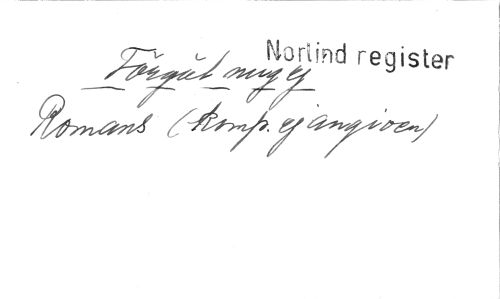 Norlind register
Förgät mig ej
Romans (komp. ej angiven)